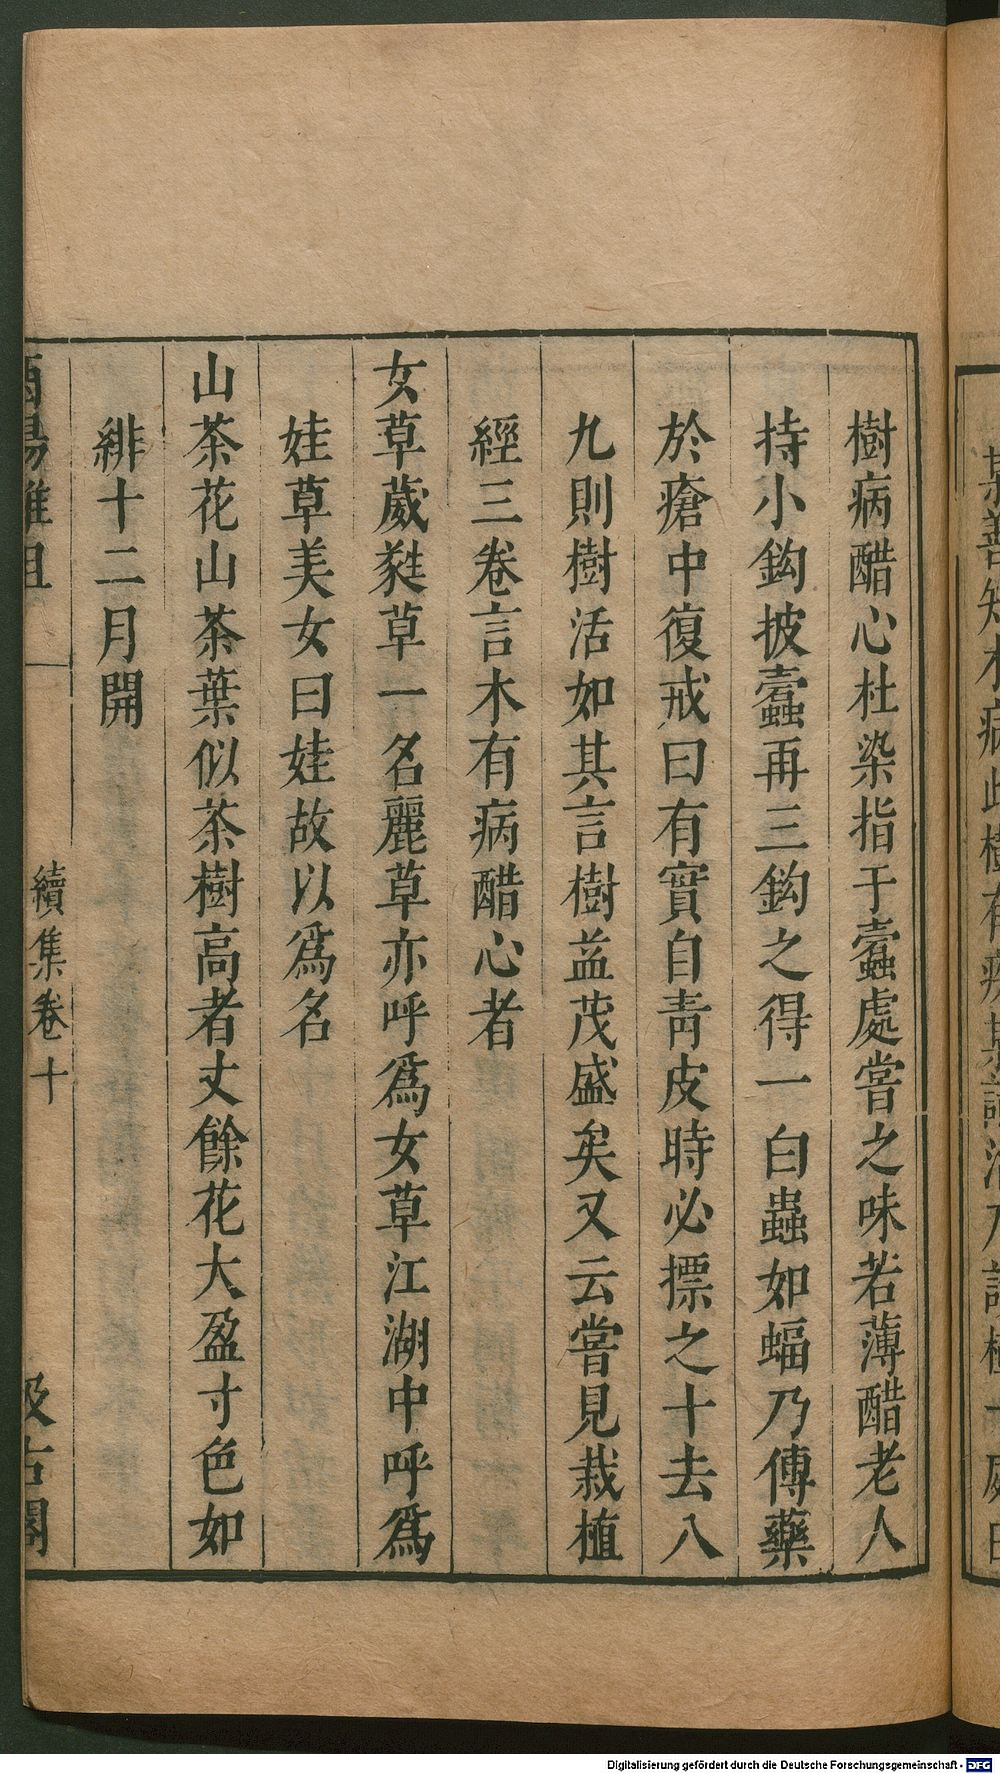 樹病醋心杜染指于蠹處嘗之味若薄醋老人
持小鈎披蠹再三鈎之得一白蟲如蝠乃傅藥
於瘡中復戒曰有實自青皮時必摽之十去八
九則樹活如其言樹益茂盛矣又云嘗見栽植
經三卷言木有病醋心者
女草葳蕤草一名麗草亦呼爲女草江湖中呼爲
娃草美女曰娃故以爲名
山茶花山茶葉似茶樹高者丈餘花大盈寸色如
緋十二月開
酉陽雜俎
續集卷十
汲古閣
Digitalisierung gefördert durch die Deutsche Forschungsgemeinschaft - DFG